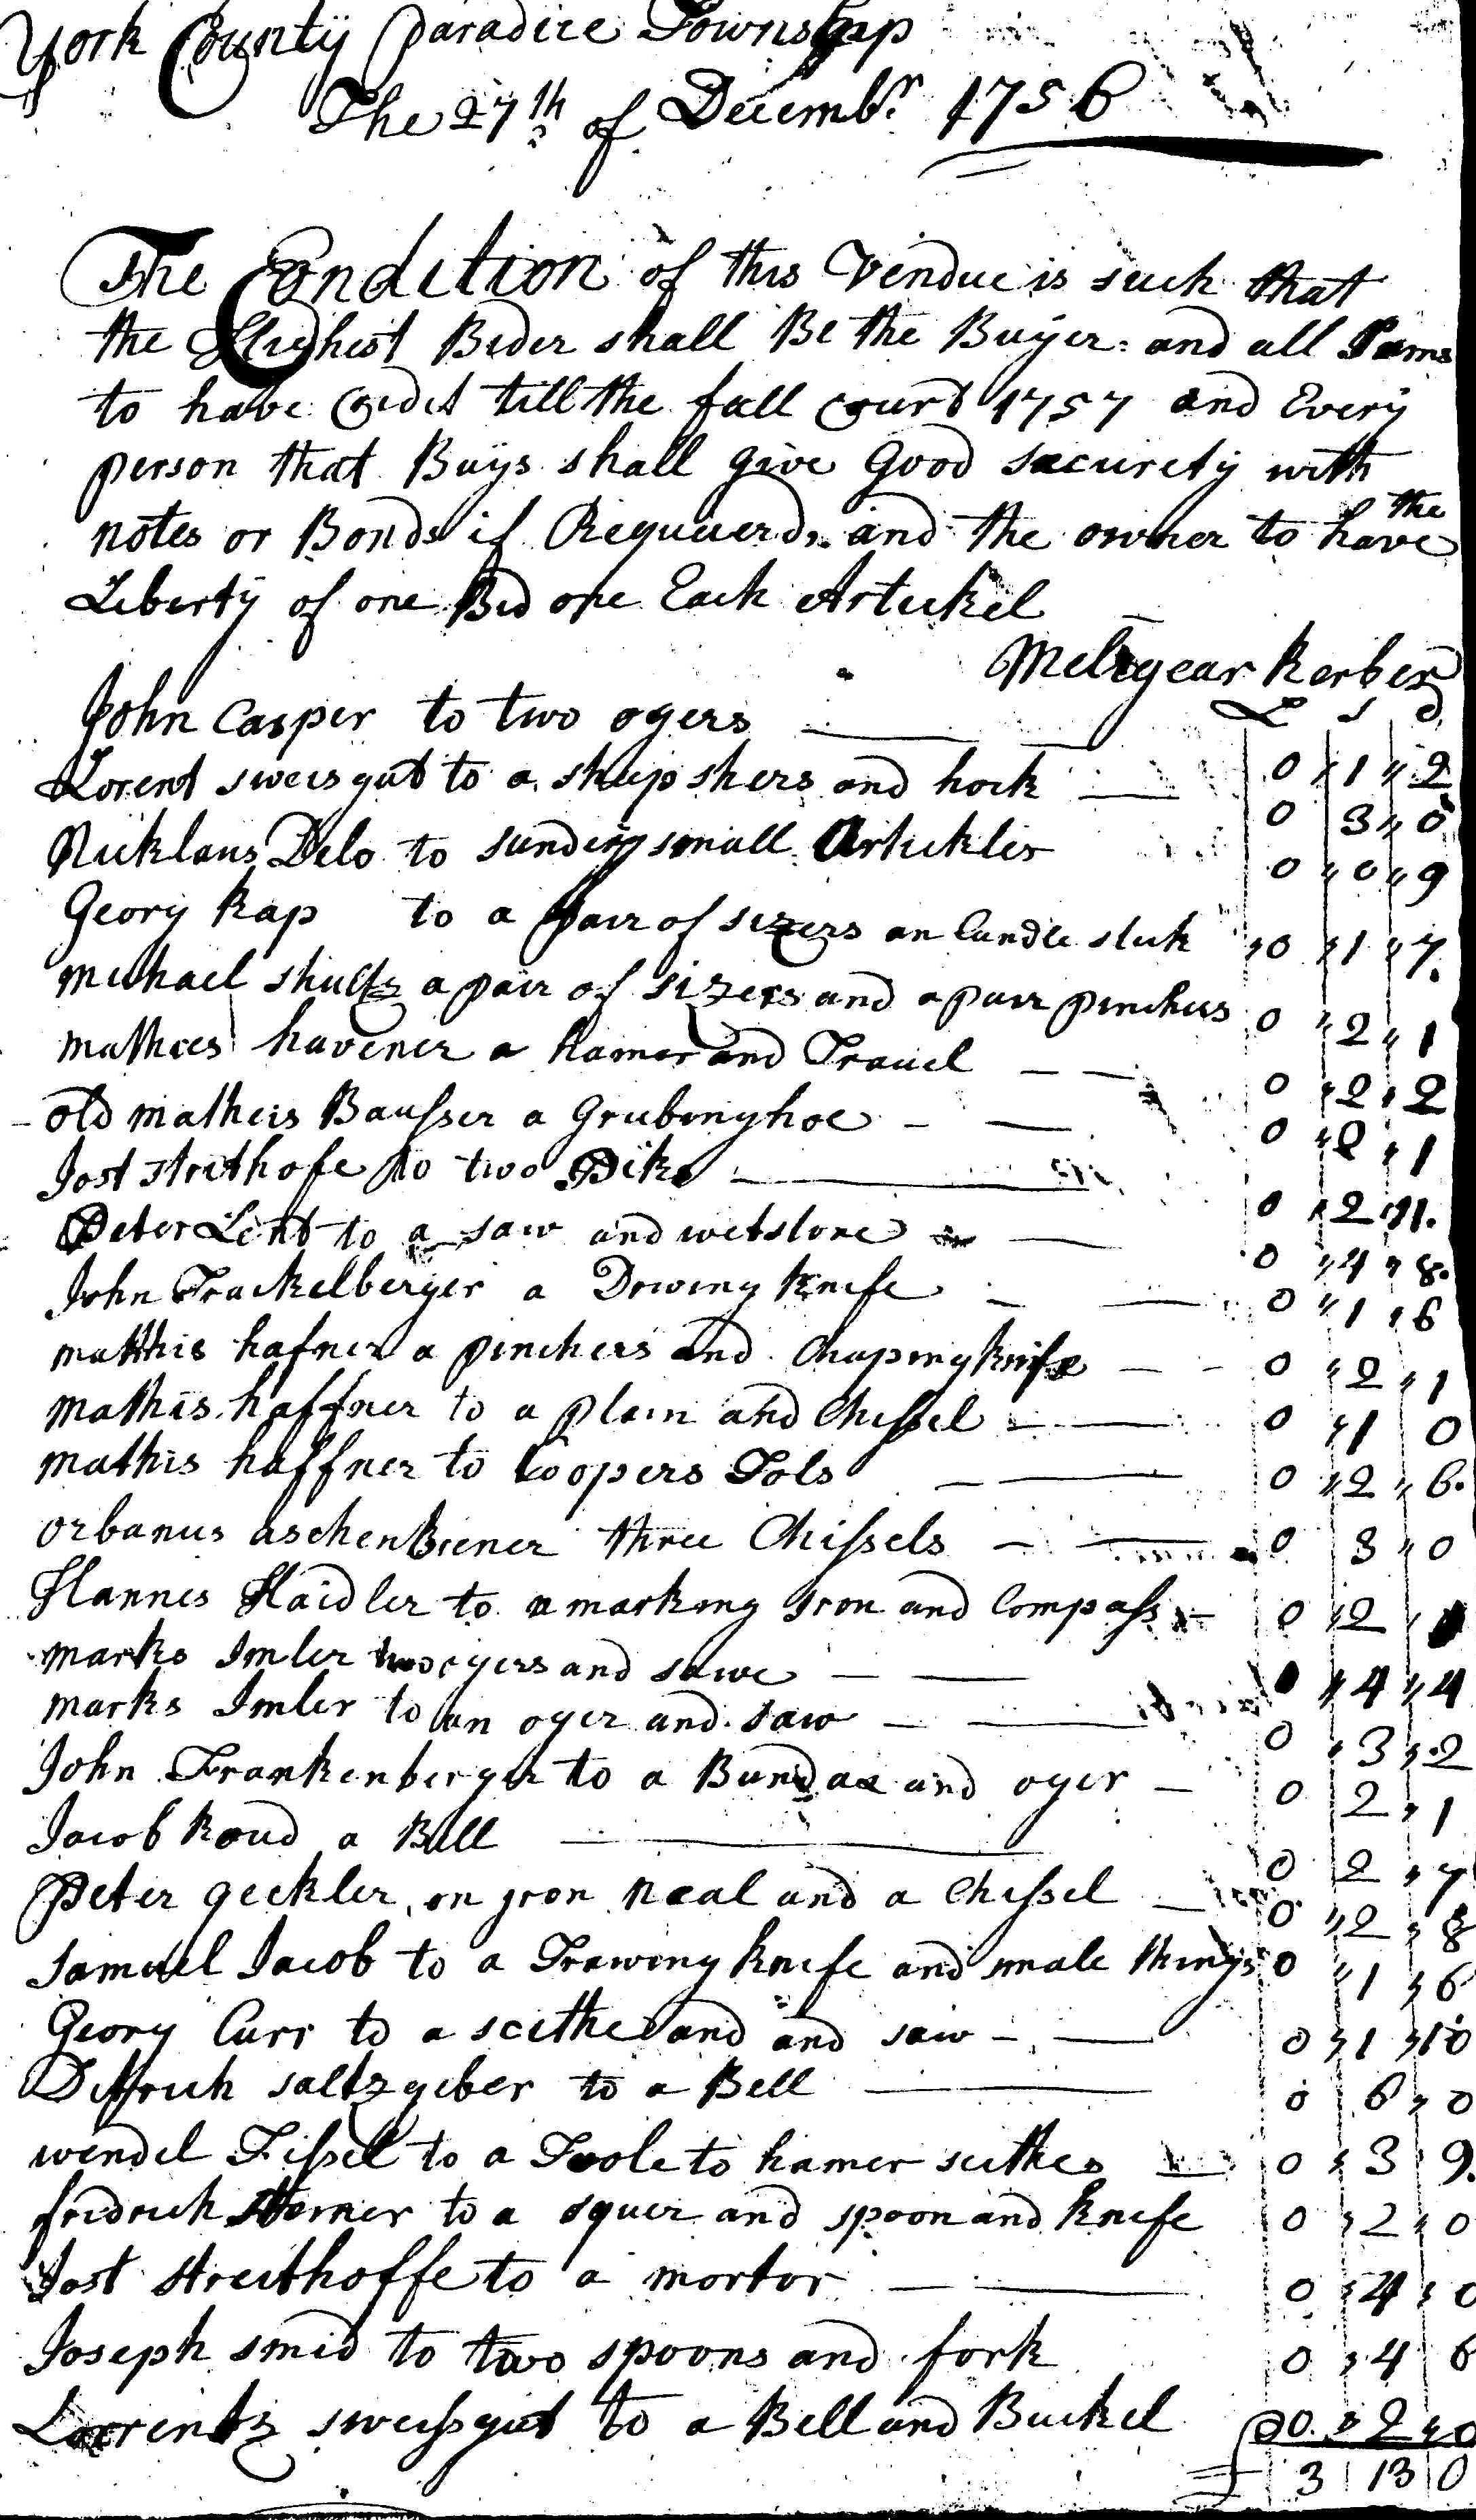 York County Paradice Township
The 27th of Decembr 1756
The Condition of this Vendue is such that
the Highest Bider shall Be the Buyer: and all
to have Credit till the fall Court 1757 and Every
person that Buys shall give Good securety with
notes or Bonds if Requierd, and the owner to have the
Liberty of one Bid one Each Artickel
Melgear Kerber
L s d
John Casper to two ogers 0 „ 1 „ 2
Lorent sweisgut to a sheep shers and hock 0 3 „ 0
Nicklaus Delo to sundery small Artickles 0 „ 0 „ 9
Geory Kap to a pair of sizers an Candle stick 0 „ 1 „ 7
michael shultz a pair of sizers and a pair pinchers 0 „ 2 „ 1
mathies havener a hamer and Trauel 0 „ 2 „ 2
old matheis Bausser a Grubinghoe 0 „ 2 „ 1
Jost strithofe to two Piks 0 „ 2 „ 11
Peter Lent to a saw and wetstone 0 „ 4 „ 8
John Frackelberger a Drowing Knife 0 „ 1 „ 6
matthis hafner a pinchers and Chapingknife 0 „ 2 „ 1
mathis haffner to a plain and Chissel 0 „ 1 0
mathis haffner to Coopers Tols 0 „ 2 „ 6
orbanus aschenbrener three Chissels 0 3 „ 0
Hannis Haidler to a marking Iron and Compass 0 „ 2 „
marks Imler two ogers and sawe „ 4 „ 4
marks Imler to an oger and saw 0 „ 3 „ 2
John Frankenberger to a Bundax and oger 0 2 „ 1
Jacob Roud a Bell 0 2 „ 7
Peter geckler, on jron neal and a Chissel 0 „ 2 „ 8
samuel Jacob to a Trawing knife and smale things 0 „ 1 „ 6
Geory Curr to a scithe and and saw 0 „ 1 „ 10
Dittrich saltzgiber to a Bell 0 6 „ 0
wendel Fissel to a Toole to hamer scithes 0 „ 3 9
fridrich Sterner to a squer and spoon and knife 0 „ 2 „ 0
Jost streithoffe to a mortor 0 „ 4 „ 0
Joseph smid to two spoons and fork 0 „ 4 6
Lorrentz sweissgut to a Bell and Buckel 0 „ 2 „ 0
3 13 0